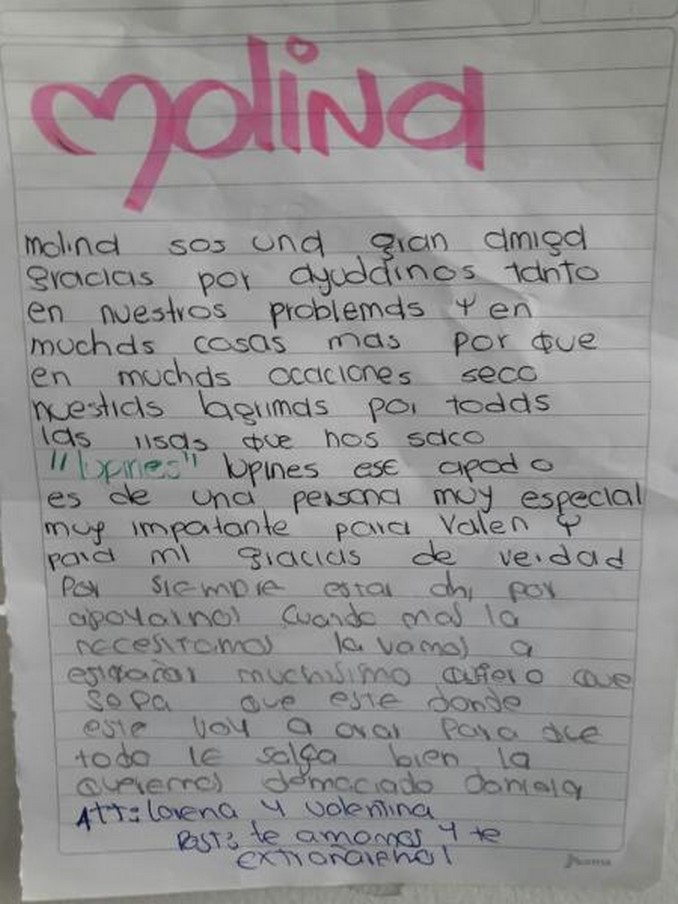 Molina
molina sos una gran amiga
gracias por ayudarnos tanto
en nuestros problemas y en
muchas cosas mas por que
en muchas ocaciones seco
nuestras lagrimas por todas
las risas que nos saco
"lupines" lupines ese apodo
es de una persona muy especial
muy impatante para valen y
para mi gracias de verdad
por siempre estar ahi por
apoyarnos cuando mas la
necesitamos la vamos a
estrañar muchisimo quiero que
sepa que este donde
este voy a orar para que
todo le salga bien la
queremos demaciado daniela
Att: lorena y valentina
Post: te amamos y te
extrañaremos!